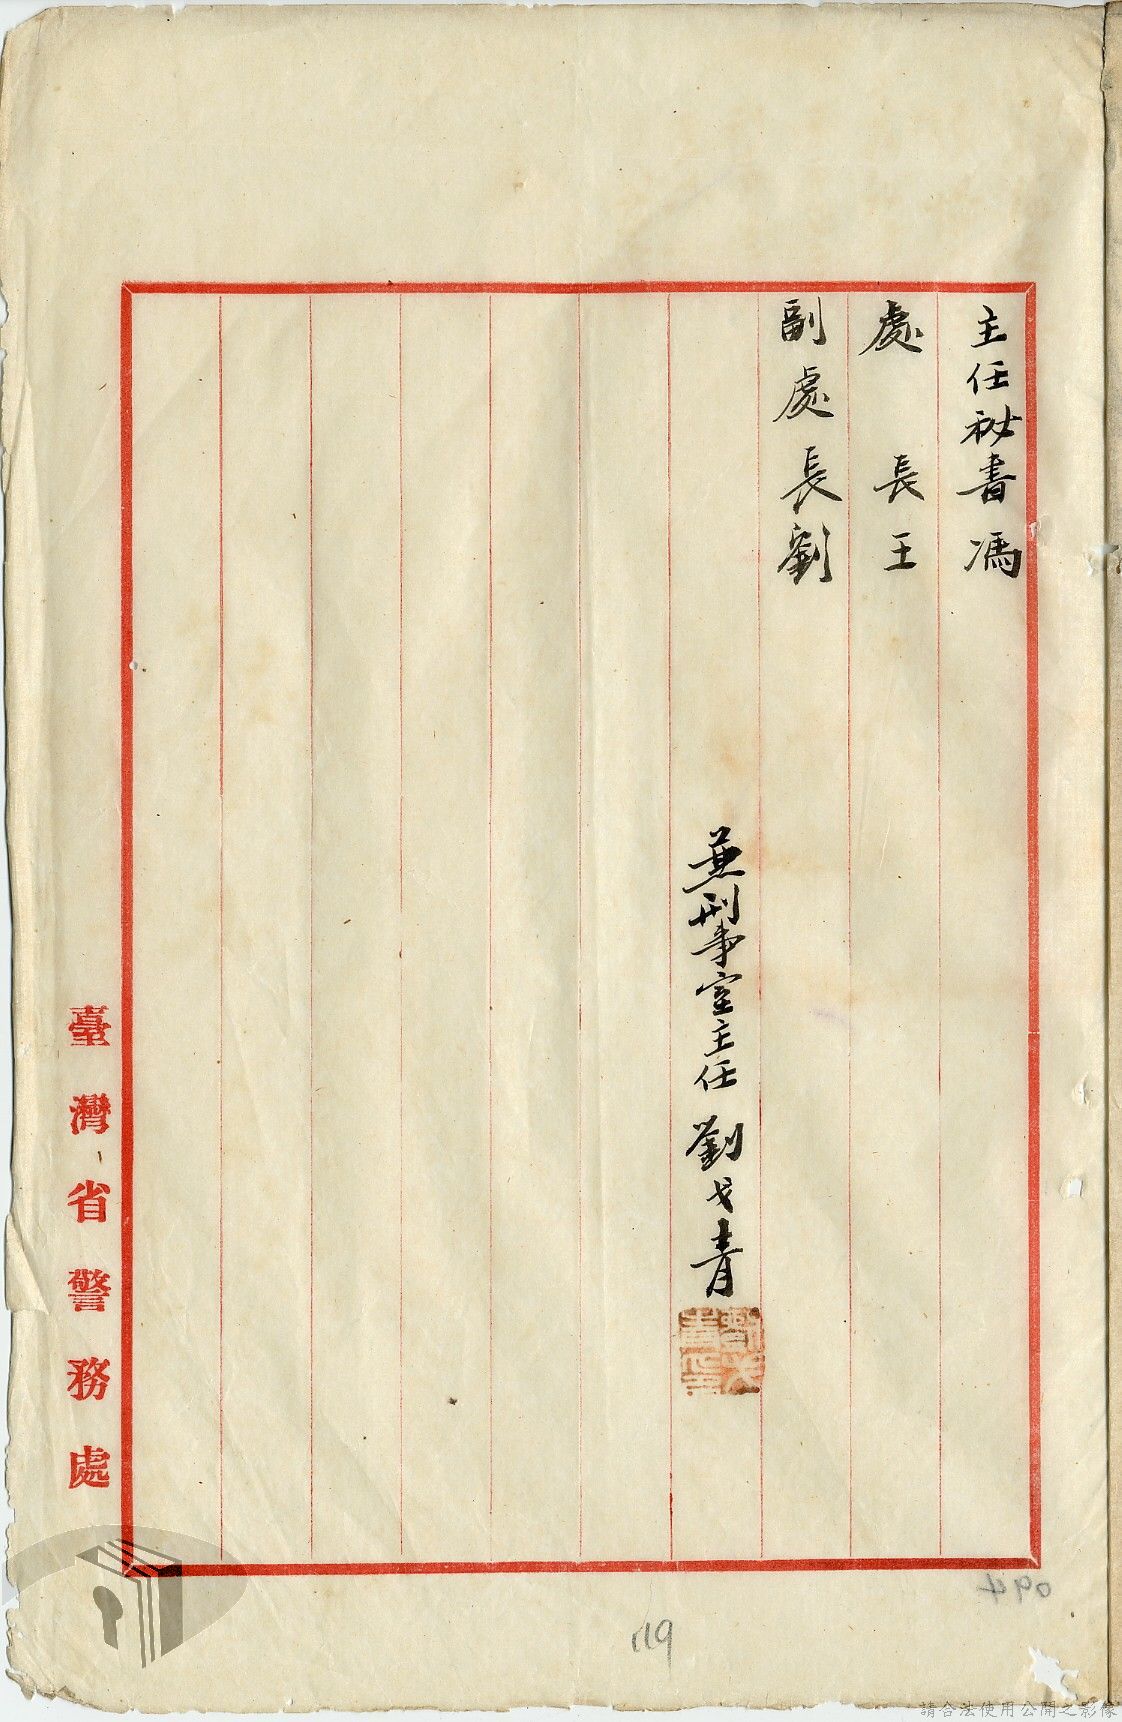 主任秘書馮
處長王
副處長劉
兼刑事室主任 劉戈青
臺灣省警務處
119
094
請合法使用公開之影像